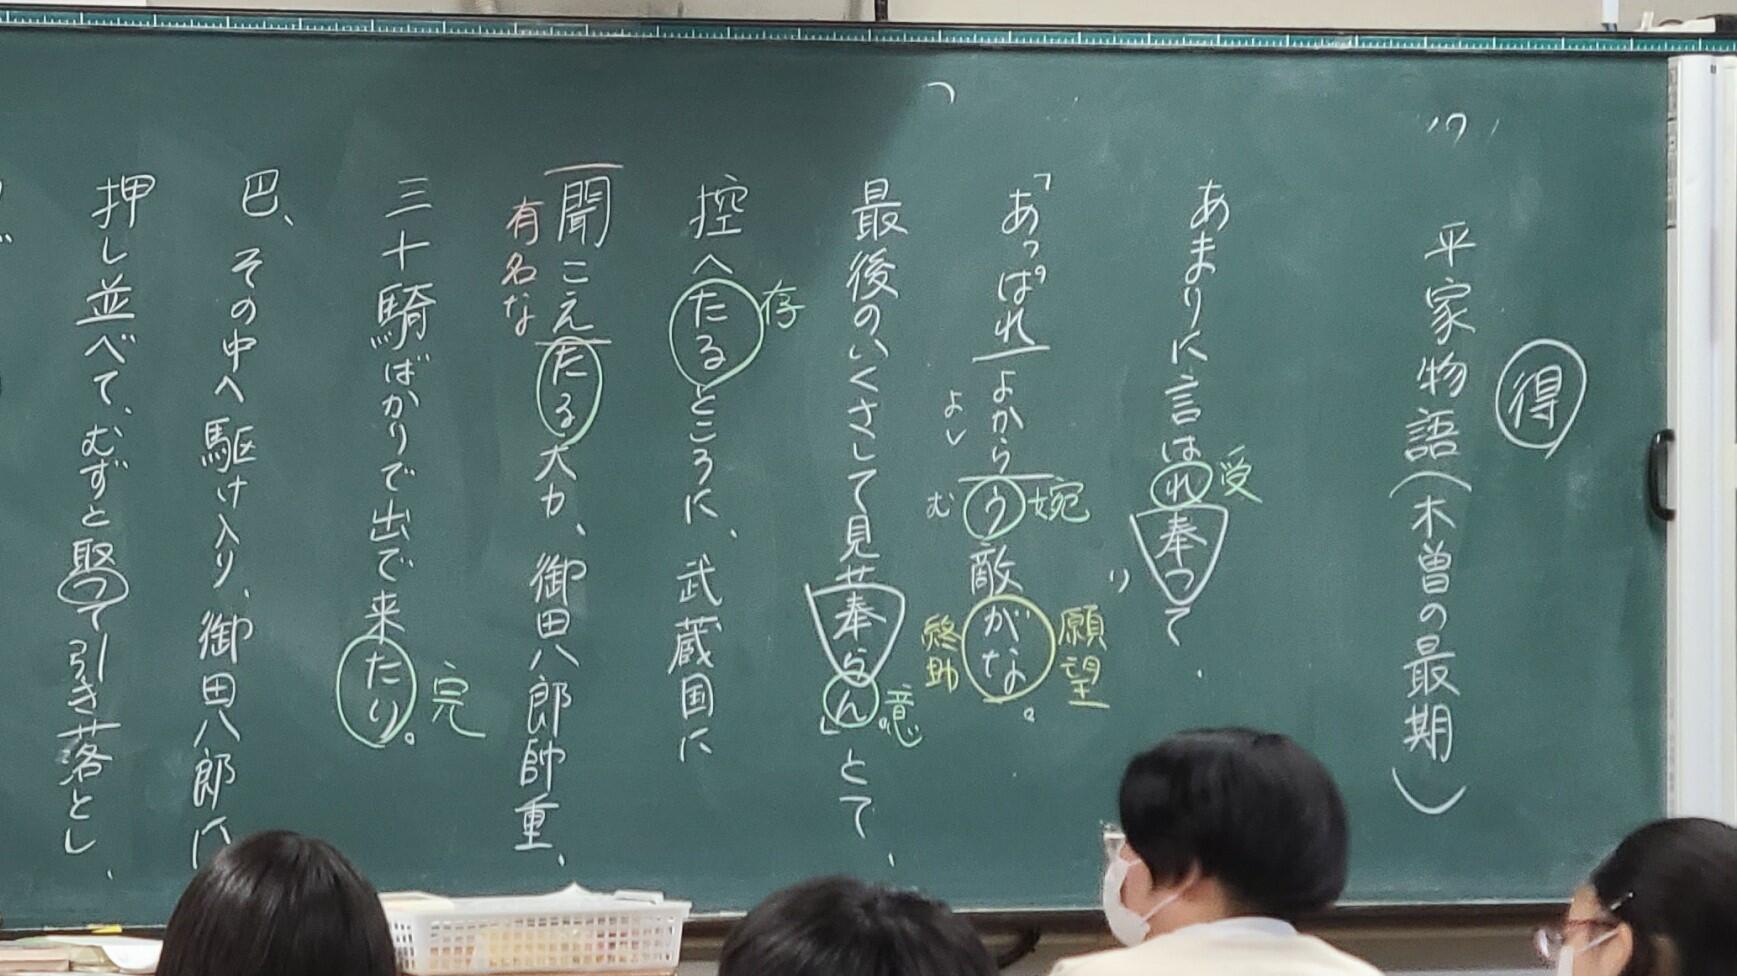 得
平家物語(木曽の最期)
あまりに言はれ奉つて、
受
り
「あつぱれ、よからう敵がな。
よし
む
婉
願望
終助
最後のいくさして見せ奉らん。」とて、
意
控へたるところに、武蔵国に
存
聞こえたる大力、御田八郎師重、
有名な
三十騎ばかりで出で来たり。
完
巴、その中へ駆け入り、御田八郎に
押し並べて、むずと取つて引き落とし、